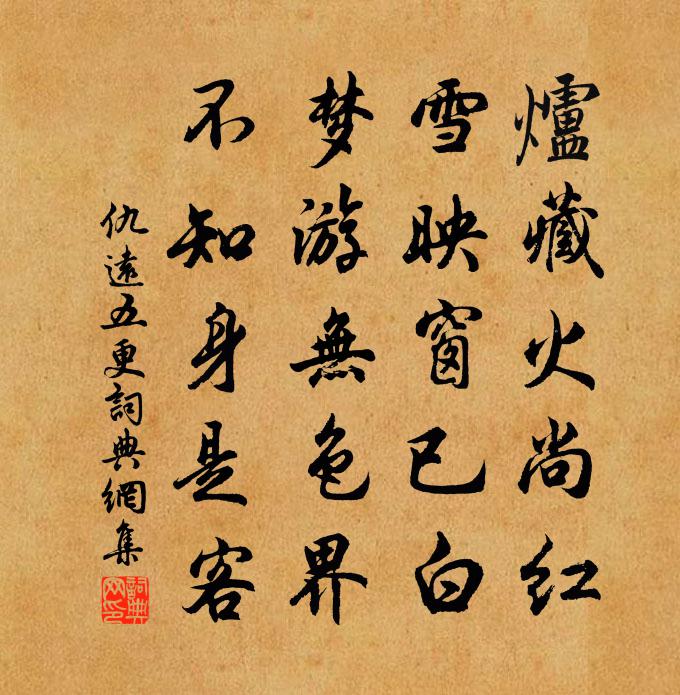 爐藏火尚红
雪映窗已白
梦游無色界
不知身是客
仇遠五更詞典網集
詞典网印